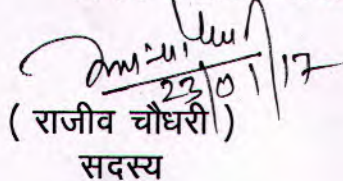 23/01/17
( राजीव चौधरी )
सदस्य